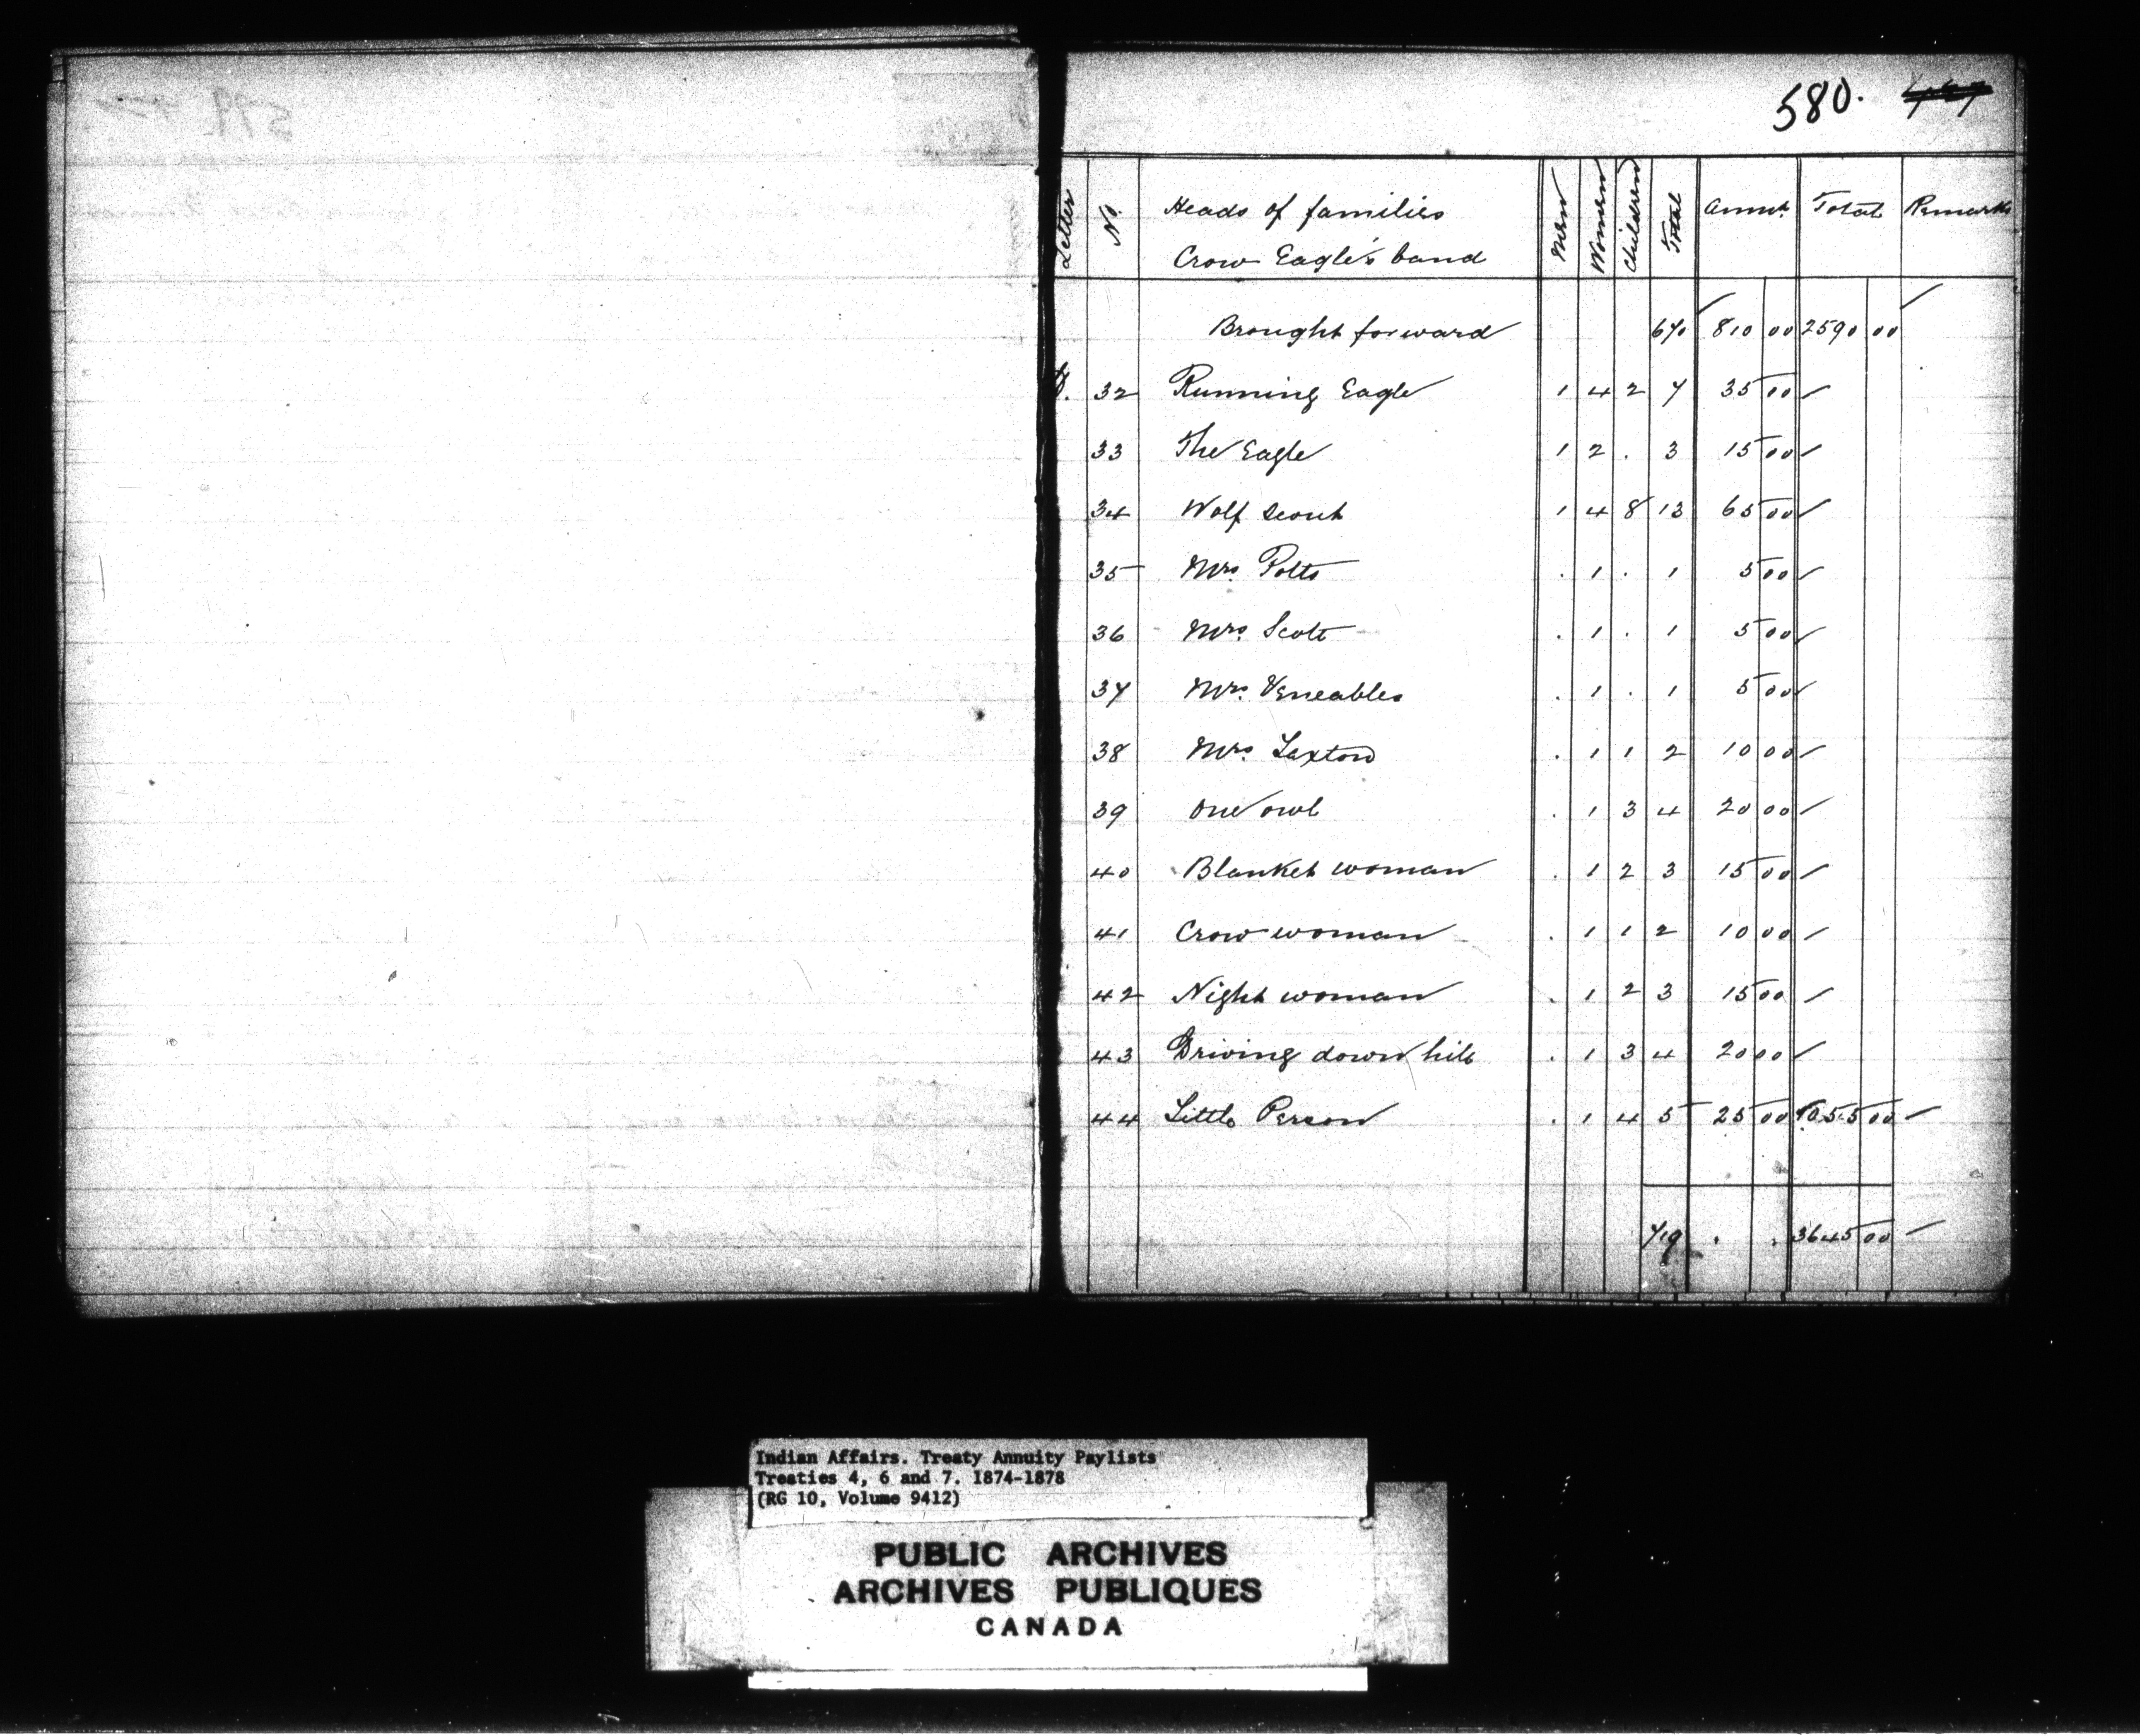 580.
Letter No. Heads of families Men Women Children Total Amnt. Total Remarks
Crow Eagle's band
Brought forward 670 810 00 2590 00
32 Running Eagle 1 4 2 7 35 00
33 The Eagle 1 2 . 3 15 00
34 Wolf scout 1 4 8 13 65 00
35 Mrs. Potts . 1 . 1 5 00
36 Mrs. Scott . 1 . 1 5 00
37 Mrs. Veneables . 1 . 1 5 00
38 Mrs. Laxton . 1 1 2 10 00
39 One owl . 1 3 4 20 00
40 Blanket woman . 1 2 3 15 00
41 Crow woman . 1 1 2 10 00
42 Night woman . 1 2 3 15 00
43 Driving down hill . 1 3 4 20 00
44 Little Person . 1 4 5 25 00 1055 00
719 . . 3645 00
Indian Affairs. Treaty Annuity Paylists
Treaties 4, 6 and 7. 1874-1878
(RG 10, Volume 9412)
PUBLIC ARCHIVES
ARCHIVES PUBLIQUES
CANADA